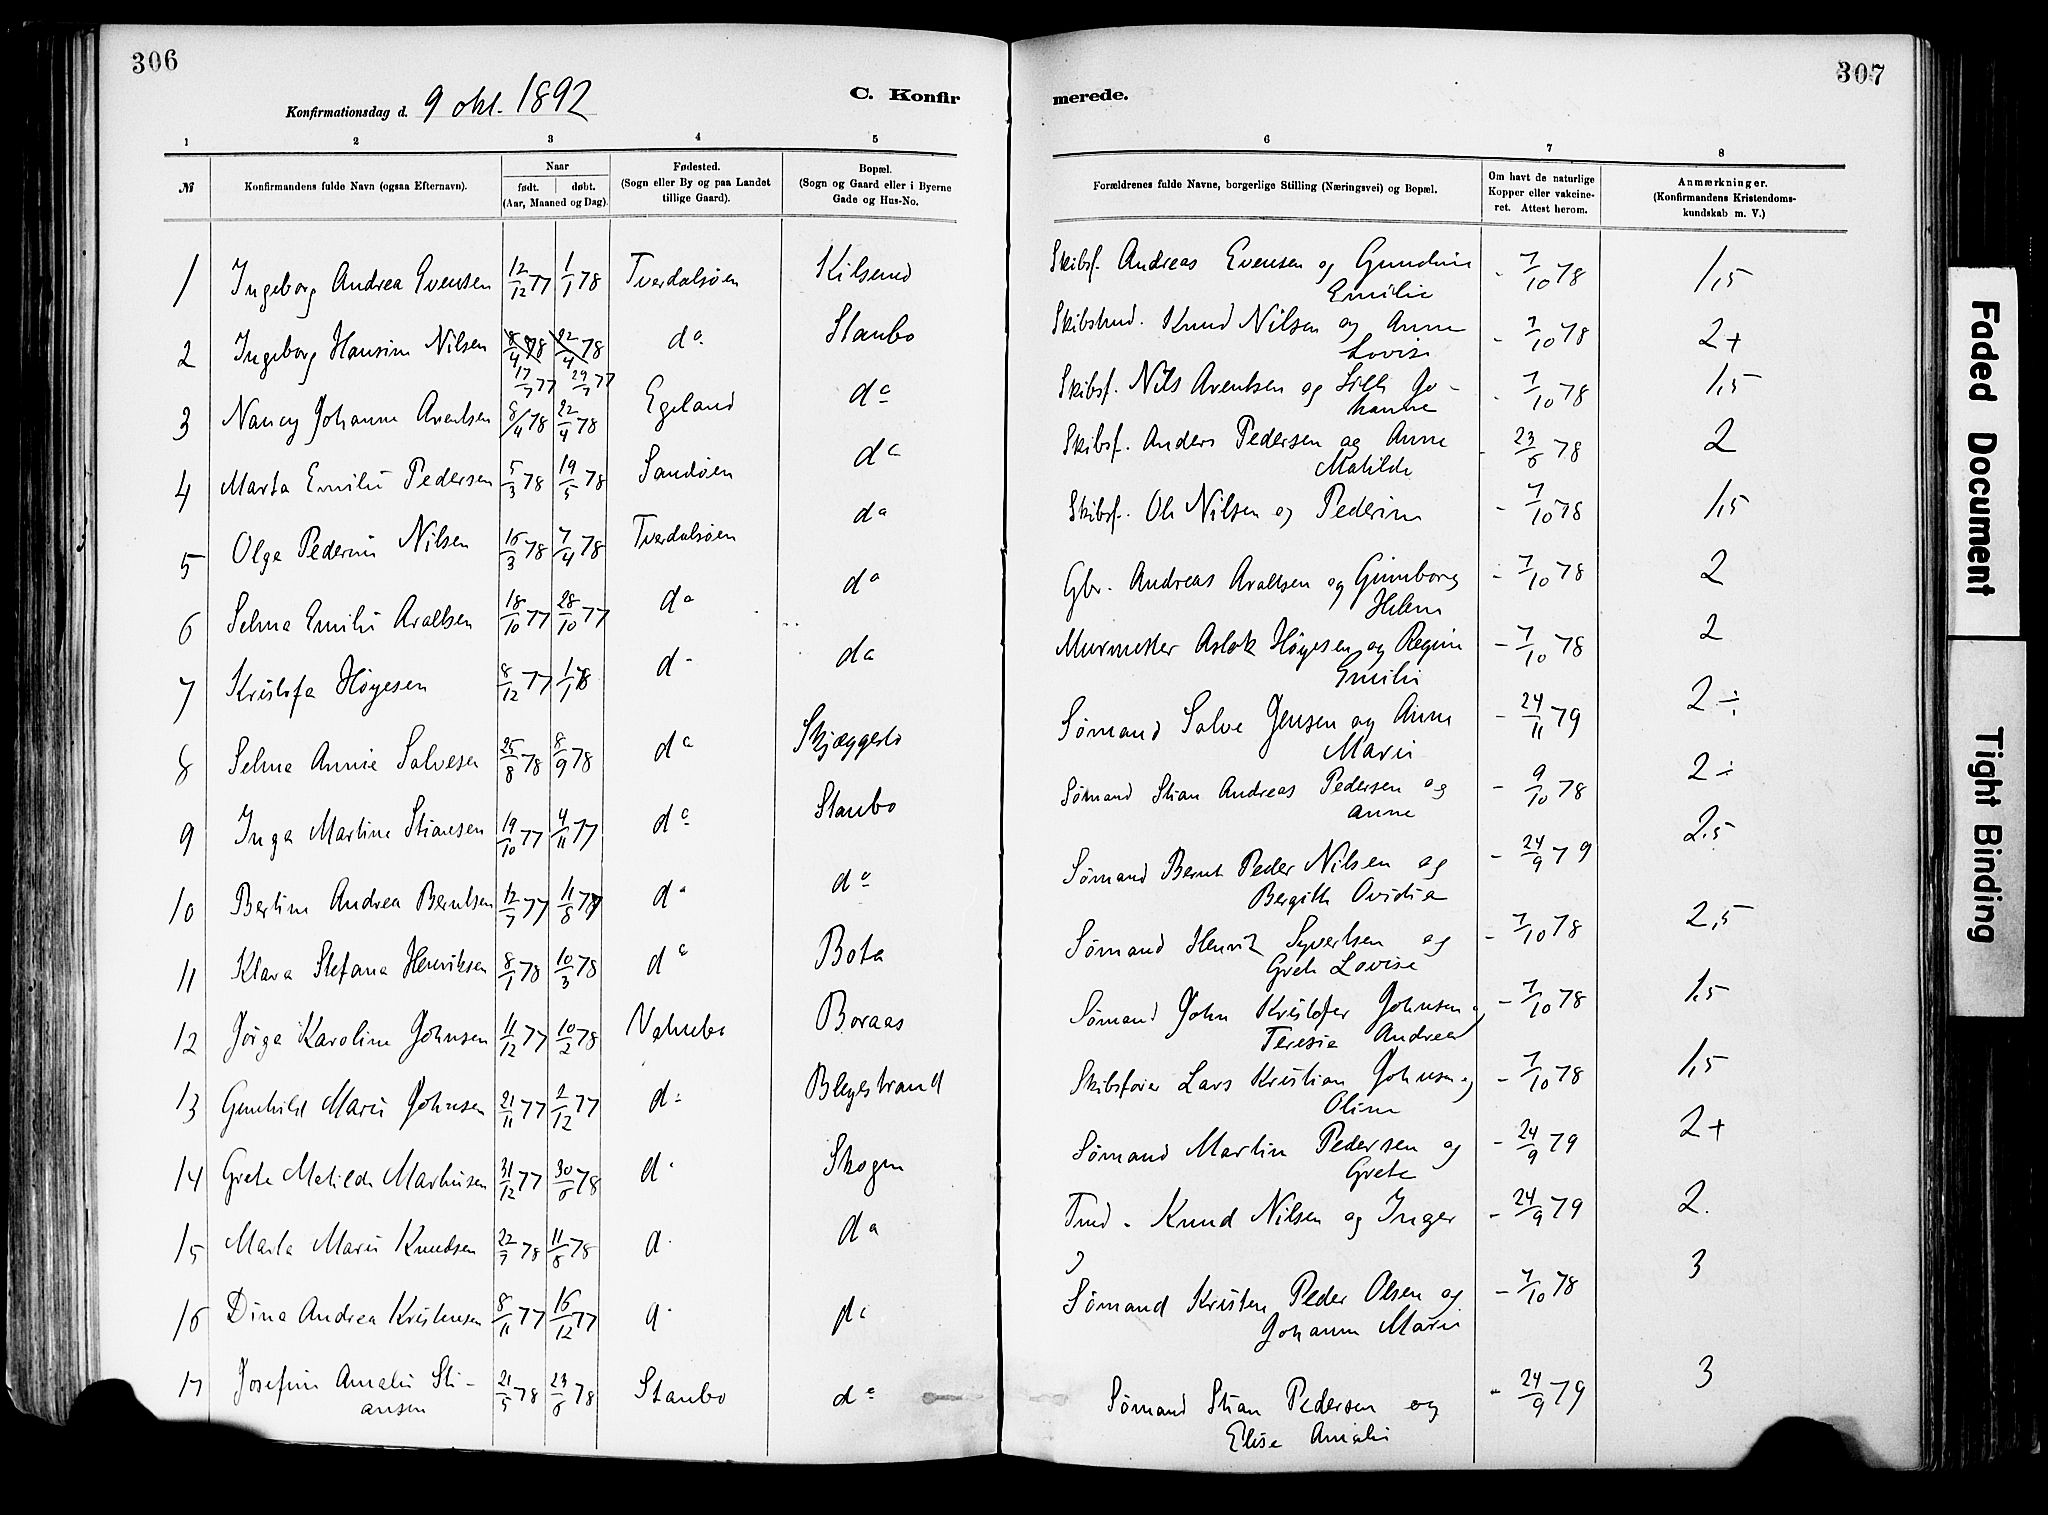 306
307
Konfirmationsdag d. 9 okt. 1892
C. Konfir
merede.
1 2 3 4 5 6 7 8
№
Konfirmandens fulde Navn (ogsaa Efternavn).
Naar
født. døbt.
(Aar, Maaned og Dag).
Fødested.
(Sogn eller By og paa Landet
tillige Gaard).
Bopæl.
(Sogn og Gaard eller i Byerne
Gade og Hus-No.
Forældrenes fulde Navne, borgerlige Stilling (Næringsvei) og Bopæl.
Om havt de naturlige
Kopper eller vakcine-
ret. Attest herom.
Anmærkninger.
(Konfirmandens Kristendoms-
kundskab m. V.)
1 Ingeborg Andrea Evensen 12/12 77 1/1 78 Tverdalsøen Kilsund Skibsf. Andreas Evensen og Gundine - 7/10 78 1,5
Emilie
2 Ingeborg Hansine Nilsen 8/4 78 22/4 78 do Staubo Skibstmd. Knud Nilsen og Anne - 7/10 78 2+
17/7 77 29/7 77 Lovise
3 Nancy Johanne Arentsen 8/4 78 22/4 78 Egeland do Skibsf. Nils Arentsen og Jo- - 7/10 78 1,5
hanne
4 Marta Emilie Pedersen 5/3 78 19/5 78 Sandøen do Skibsf. Anders Pedersen og Anne - 23/6 78 2
Matilde
5 Olga Pederine Nilsen 16/3 78 7/4 78 Tverdalsøen do Skibsf. Ole Nilsen og Pederine - 7/10 78 1,5
6 Selma Emilie Araldsen 18/10 77 28/10 77 do do Gbr. Andreas Araldsen og Gunnborg - 7/10 78 2
Helene
7 Kristofa Høyesen 8/12 77 1/1 78 d- do Murmester Aslak Høyesen og Regine - 7/10 78 2
Emilie
8 Selma Annie Salvesen 25/8 78 8/9 78 do Skjæggestø Sømand Salve Jensen og Anne - 24/11 79 2÷
Marie
9 Inga Martine Stiansen 19/10 77 4/11 77 do Staubo Sømand Stian Andreas Pedersen og - 9/10 78 2÷
Anne
10 Bertine Andrea Berntsen 12/7 77 11/8 77 do do Sømand Bernt Peder Nilsen og - 24/9 79 2.5
Bergitte Ovidia
11 Klara Stefana Henriksen 8/1 78 10/3 78 do Bota Sømand Henrik Syvertsen og - 7/10 78 2,5
Grete Lovise
12 Jørga Karoline Johnsen 11/12 77 10/2 78 Boraas Sømand John Kristofer Johnsen og - 7/10 78 1,5
Teresie Andrea
13 Gunhild Marie Johnsen 21/11 77 2/12 77 d: Blegestrand Skibsfører Lars Kristian Johnsen og - 7/10 78 1,5
Oline
14 Grete Matilde Martinsen 31/12 77 30/6 78 d. Skogen Sømand Martin Pedersen og - 24/9 79 2+
Grete
15 Marta Marie Knudsen 22/3 78 11/8 78 d. do Knud Nilsen og Inger - 24/9 79 2.
16 Dina Andrea Kristensen 8/11 77 16/12 77 d. do Sømand Kristen Peder Olsen og - 7/10 78 3
Johanne Marie
17 Josefine Amalie Sti- 21/5 78 23/6 78 Staubo do Sømand Stian Pedersen og - 24/9 79 3
ansen Elise Amalie
Faded Document
Tight Binding